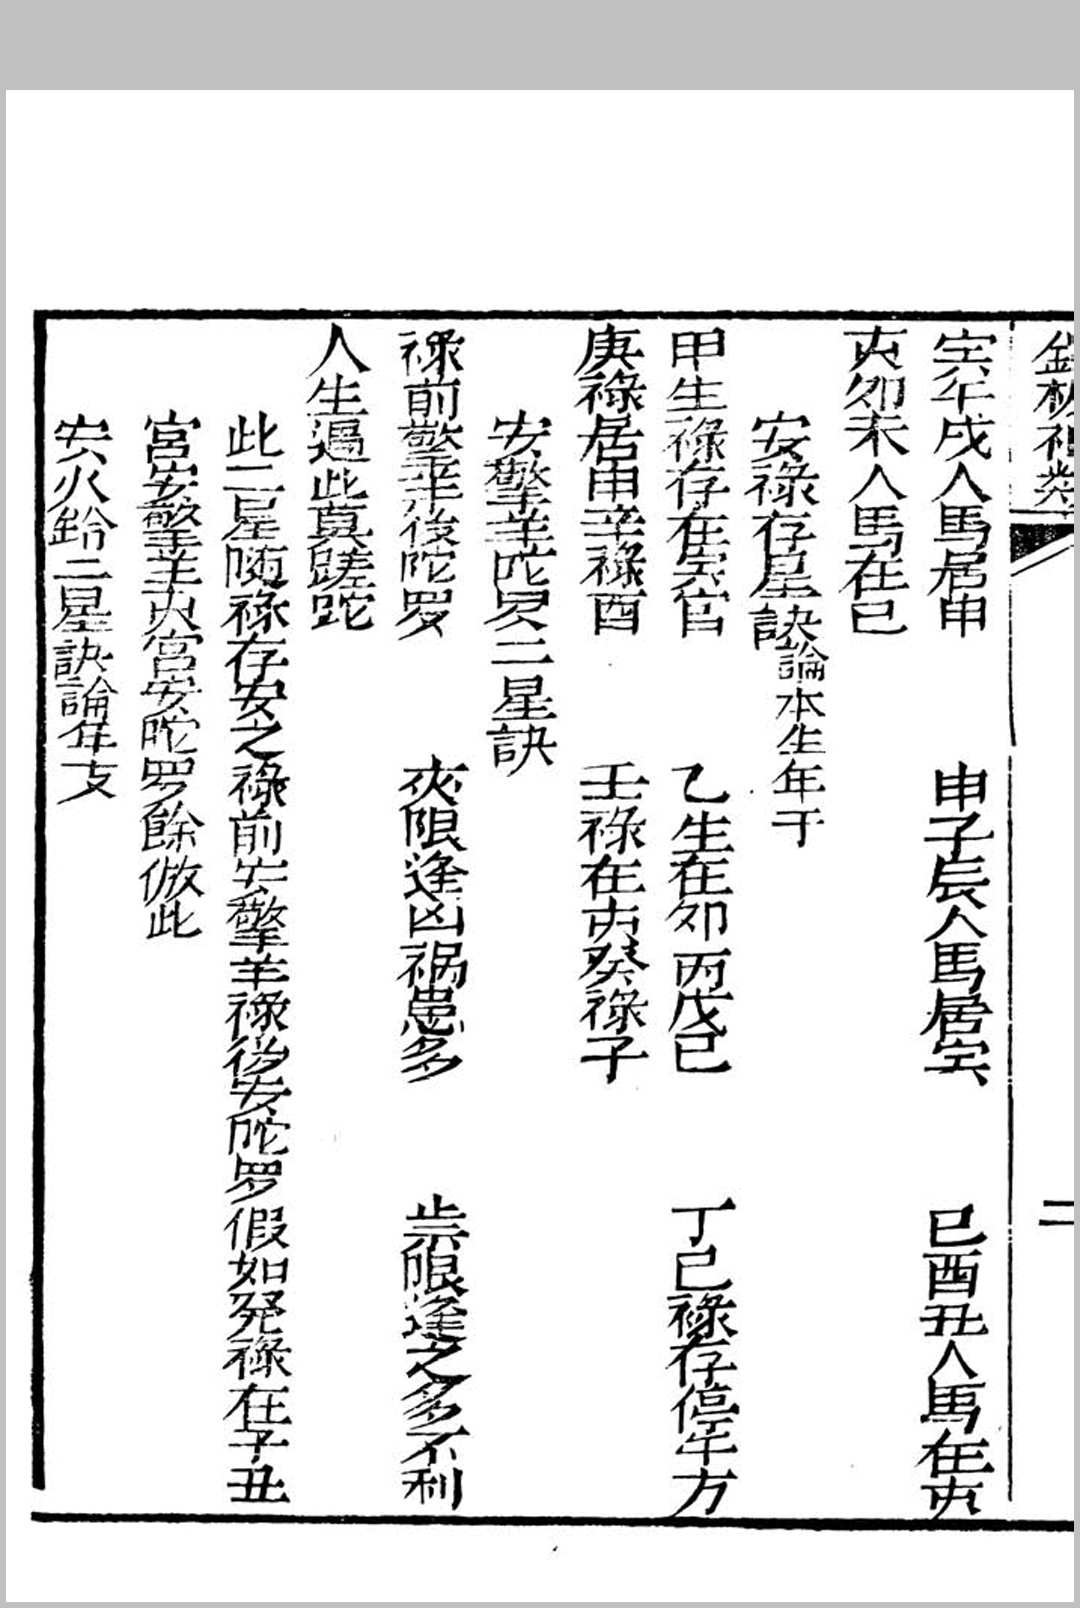 二
寅午戌人馬居申　申子辰人馬居寅　巳酉丑人馬在亥
亥卯未人馬在巳
安祿存星訣論本生年干
甲生祿存在寅宫　乙生在卯丙戊巳　丁己祿存停午方
庚祿居申辛祿酉　壬祿在亥癸祿子
安擎羊陀罗二星訣
祿前擎羊後陀罗　夾限逢凶祸患多　歲限逢之多不利
人生遇此莫蹉跎
此二星随祿存安之祿前安擎羊祿後安陀罗假如癸祿在子丑
宮安擎羊亥宮安陀罗餘倣此
安火鈴二星訣論年支